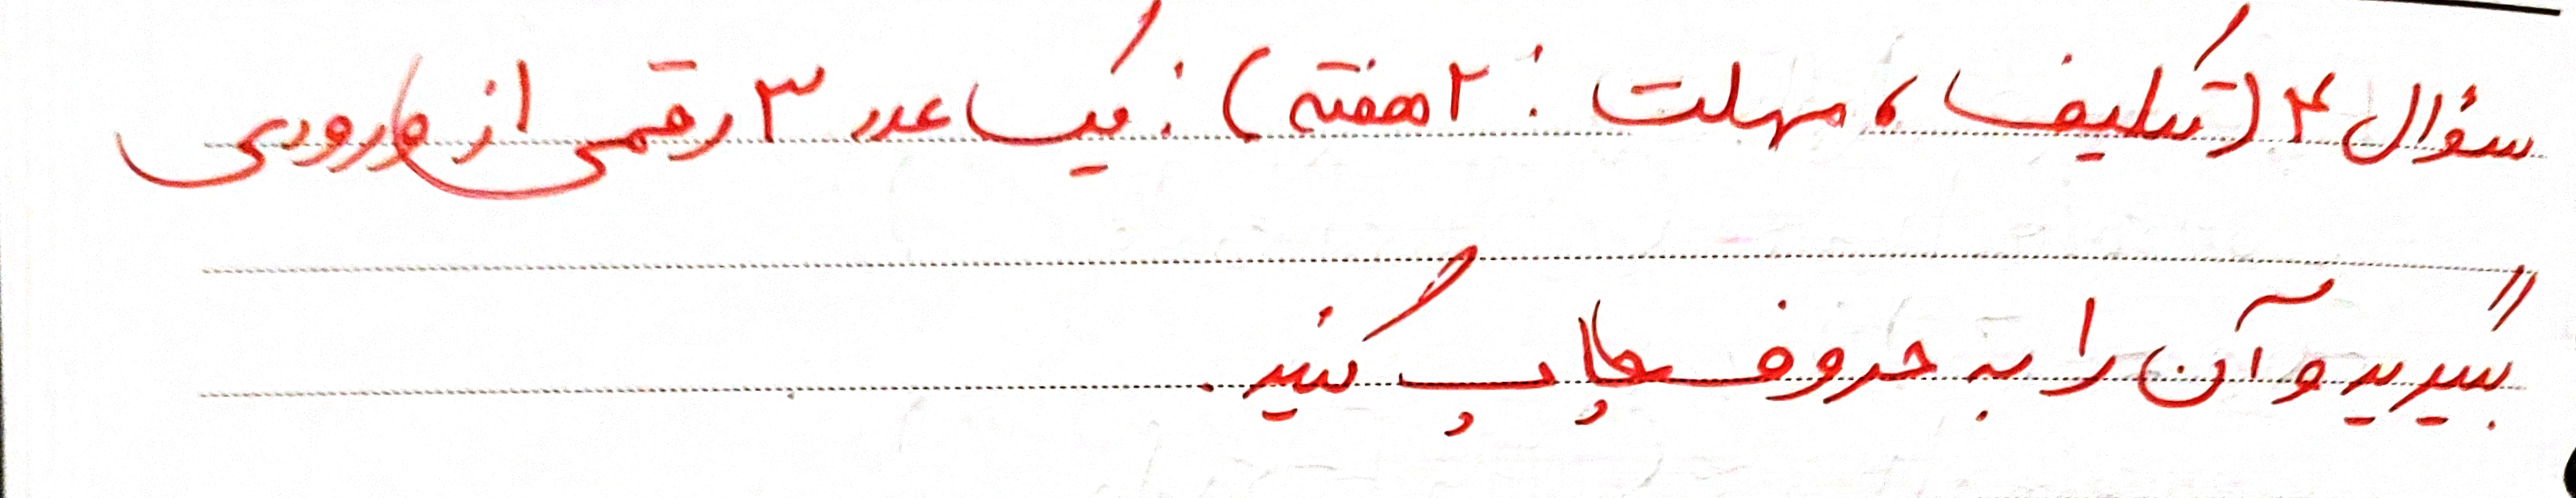 سؤال ۴ (تکلیف، مهلت: ۲ هفته): یک عدد ۳ رقمی از ورودی
بگیرید و آن را به حروف چاپ کنید.